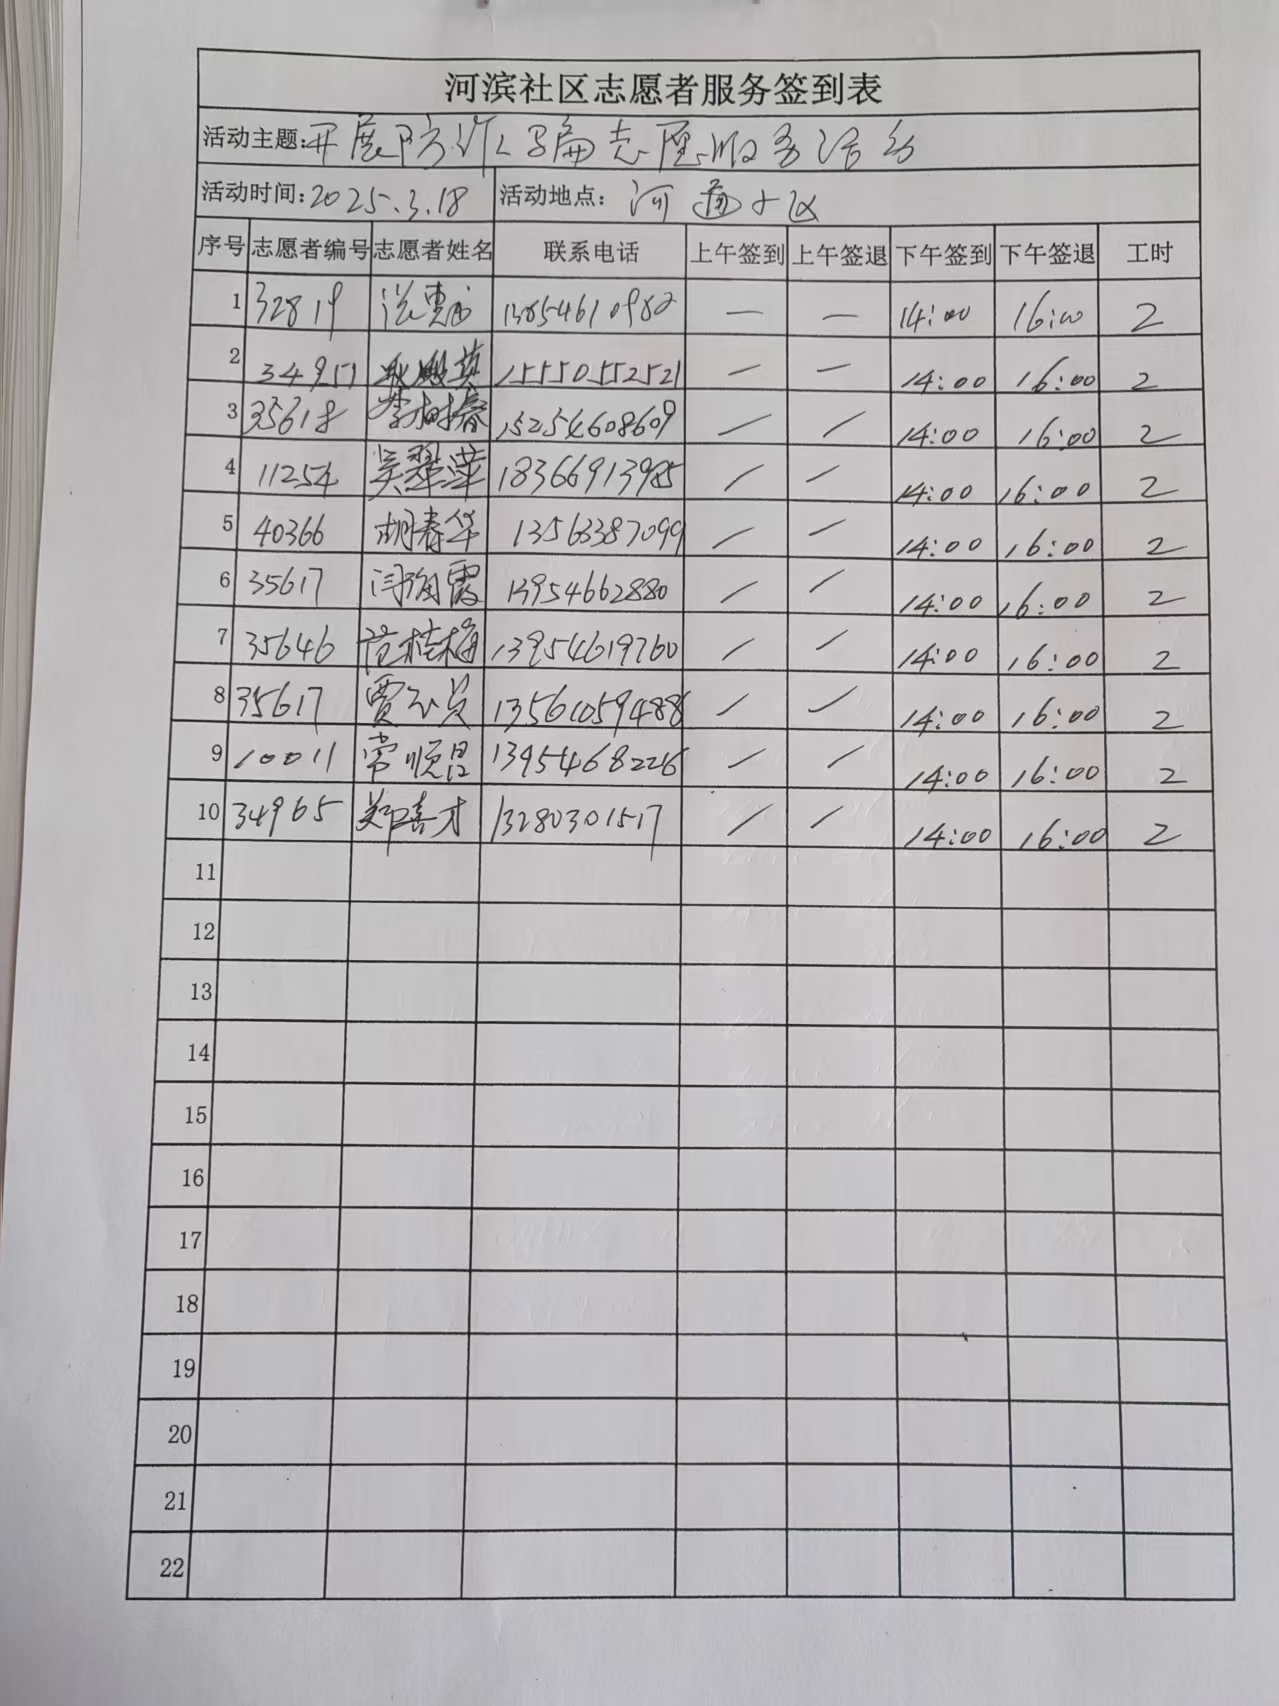 河滨社区志愿者服务签到表
活动主题:开展防诈骗志愿服务活动
活动时间:2025.3.18 活动地点: 河 小区
序号 志愿者编号 志愿者姓名 联系电话 上午签到 上午签退 下午签到 下午签退 工时
1 32819 — — 14:00 16:00 2
2 34951 15550552521 — — 14:00 16:00 2
3 35618 李树春 15254608609 / / 14:00 16:00 2
4 11254 吴翠萍 18366913985 / / 14:00 16:00 2
5 40366 胡春华 13563387099 / / 14:00 16:00 2
6 35617 闫海霞 13954662880 / / 14:00 16:00 2
7 35646 范桂梅 13954619760 / / 14:00 16:00 2
8 35617 贾 / / 14:00 16:00 2
9 10011 常顺昌 13954682226 / / 14:00 16:00 2
10 34965 郑喜才 13280301517 / / 14:00 16:00 2
11
12
13
14
15
16
17
18
19
20
21
22